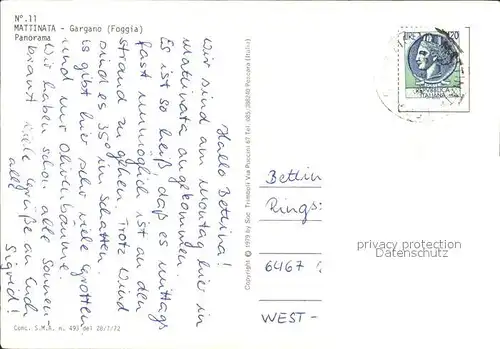 N°.11
MATTINATA - Gargano (Foggia)
Panorama
Hallo Bettina!
Wir sind am Montag hier in
Mattinata angekommen.
Es ist so heiß, daß es mittags
fast unmöglich ist an den
Strand zu gehen. Trotz Wind
sind es 35° im Schatten.
Es gibt hier sehr viele Grotten
und nur Olivenbäume.
Wir haben schon alle Sonnen-
brand. Viele Grüße an Euch
alle Sigrid!
Conc. S.M.A. n. 495 del 28/7/72
Copyright © 1979 by Soc. Trimboli Via Piaccini 67 Tel. 085/388240 Pescara (Italia)
LIRE 120
REPUBBLICA
ITALIANA
Bettin
Rings:
6467
WEST-
privacy protection
Datenschutz